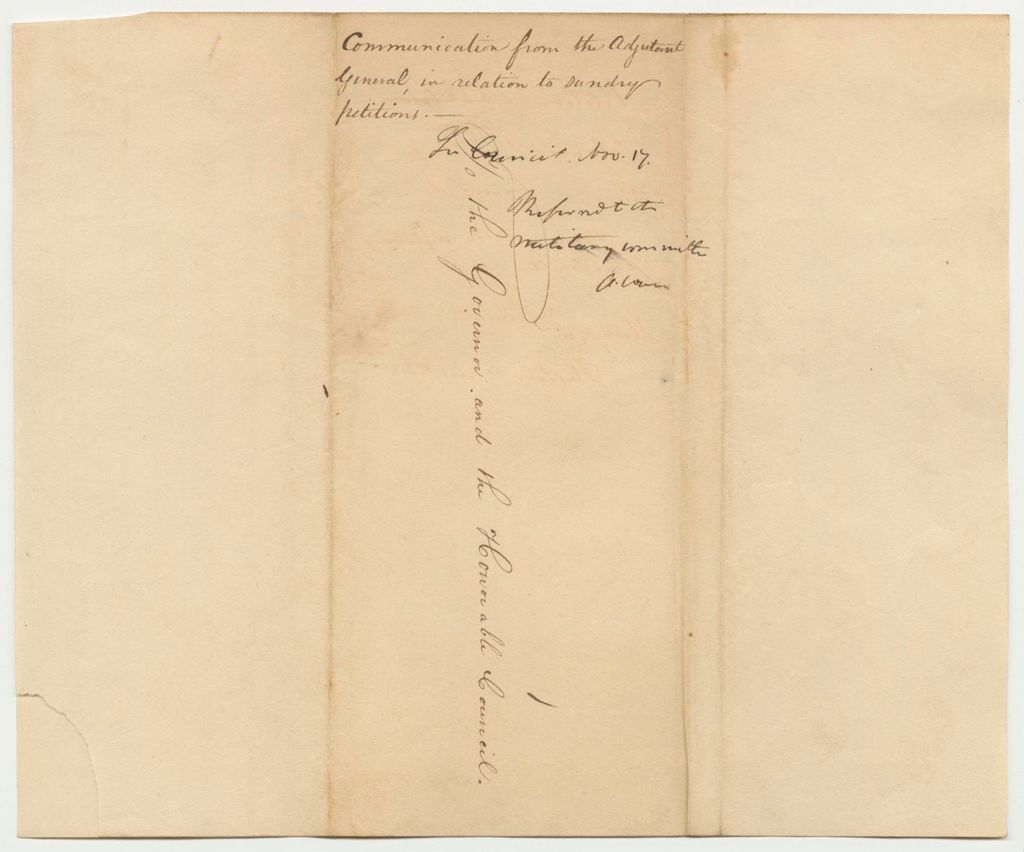 Communication from the Adjutant
General, in relation to sundry
petitions. —
In Council. Nov. 17.
Referred to the
military committee
To the Governor and the Honorable Council.